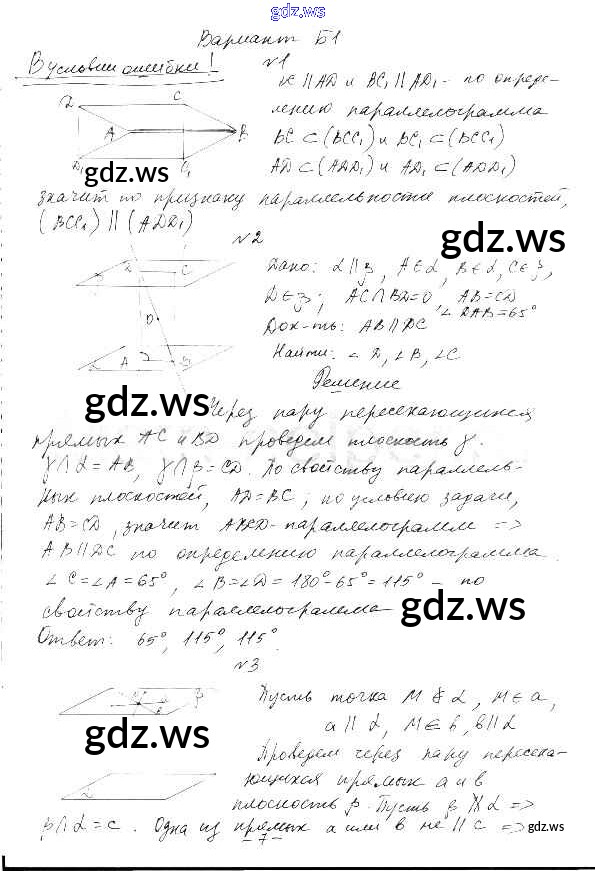 gdz.ws
Вариант Б1
В условии ошибки! №1
BC ∥ AD и BC₁ ∥ AD₁ - по опреде-
лению параллелограмма
BC ⊂ (BCC₁) и BC₁ ⊂ (BCC₁)
AD ⊂ (ADD₁) и AD₁ ⊂ (ADD₁)
gdz.ws
значит по признаку параллельности плоскостей,
(BCC₁) ∥ (ADD₁)
gdz.ws
№2
Дано: α ∥ β, A ∈ α, B ∈ α, C ∈ β,
D ∈ β; AC ∩ BD = O, AB = CD
∠DAB = 65°
Док-ть: AB ∥ DC
Найти: ∠D, ∠B, ∠C
Решение
gdz.ws
Через пару пересекающихся
прямых AC и BD проведем плоскость γ.
γ ∩ α = AB, γ ∩ β = CD. По свойству параллель-
ных плоскостей, AD = BC; по условию задачи,
AB = CD, значит ABCD - параллелограмм =>
AB ∥ DC по определению параллелограмма.
∠C = ∠A = 65°, ∠B = ∠D = 180° - 65° = 115° - по
свойству параллелограмма
gdz.ws
Ответ: 65°, 115°, 115°.
№3
Пусть точка M ∉ α, M ∈ a,
a ∥ α, M ∈ b, b ∥ α
gdz.ws
Проведем через пару пересека-
ющихся прямых a и b
плоскость β. Пусть β ∦ α =>
β ∩ α = c. Одна из прямых a или b не ∥ c =>
gdz.ws
- 7 -